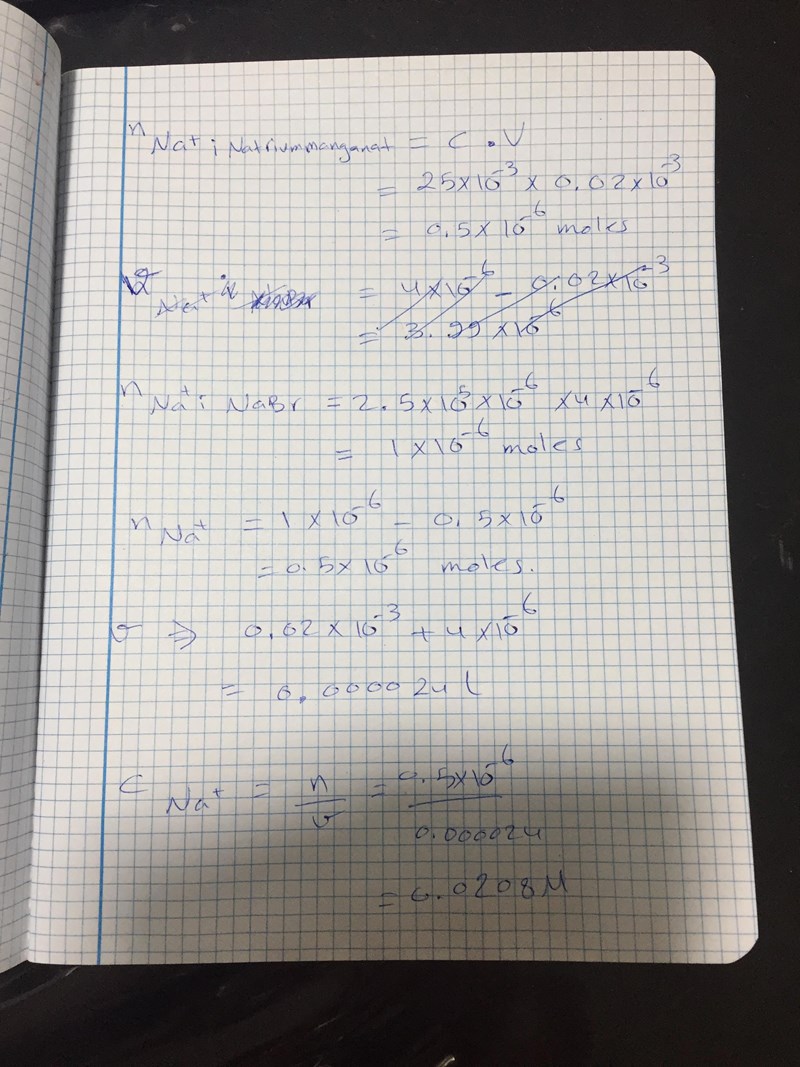 n Na+ i Natriummanganat = C . V
= 25x10^-3 x 0.02x10^-3
= 0.5x10^-6 moles
Na+ = 4x10^-6 - 0.02x10^-3
= 3.99x10^-6
n Na+ i NaBr = 2.5x10^5x10^-6 x4x10^-6
= 1x10^-6 moles
n Na+ = 1x10^-6 - 0.5x10^-6
= 0.5x10^-6 moles.
v ⇒ 0.02x10^-3 + 4x10^-6
= 0.000024 L
C Na+ = n/v = 0.5x10^-6/0.000024
= 0.0208M